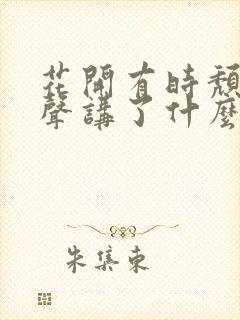 花開有時頹
聲講了什麼
朱集東